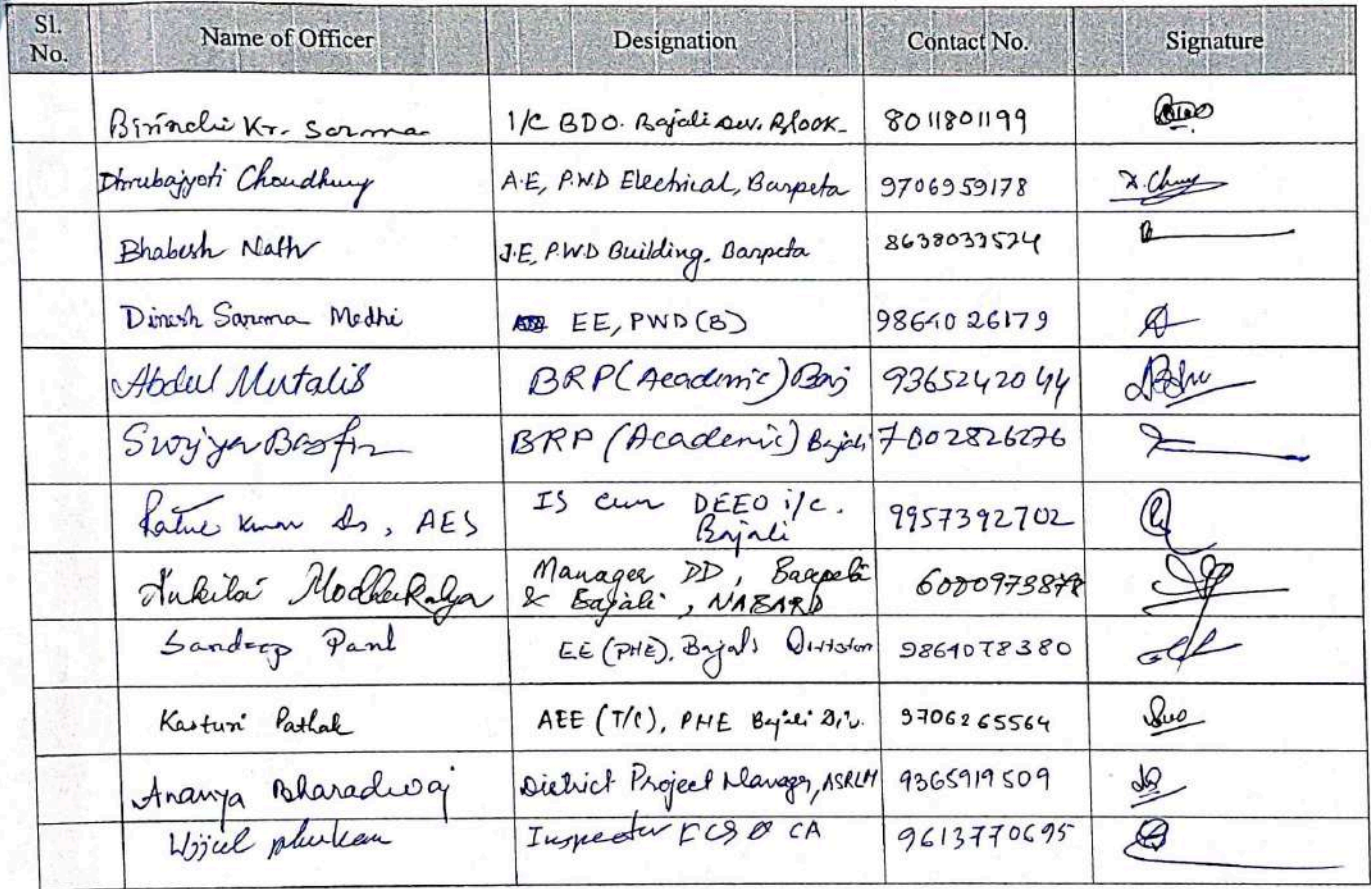 Sl. No. Name of Officer Designation Contact No. Signature
Birinchi Kr. Sarma I/C BDO. Bajali Dev. Block 8011801199
Dhrubajyoti Choudhury A.E, P.W.D Electrical, Barpeta 9706959178
Bhabesh Nath J.E, P.W.D Building, Barpeta 8638033524
Dinesh Sarma Medhi EE, PWD (B) 9864026179
Abdul Mutalib BRP (Academic) Baj 9365242044
BRP (Academic) Bajali 7002826276
Kumar Das, AES IS cum DEEO i/c. Bajali 9957392702
Manager DD, Barpeta & Bajali, NABARD
Sandeep Paul EE (PHE), Bajali Division 9864078380
Kasturi Pathak AEE (T/C), PHE Bajali Div. 9706265564
Ananya Bharadwaj District Project Manager, ASRLM 9365919509
Ujjal Phukan Inspector FCS & CA 9613770695